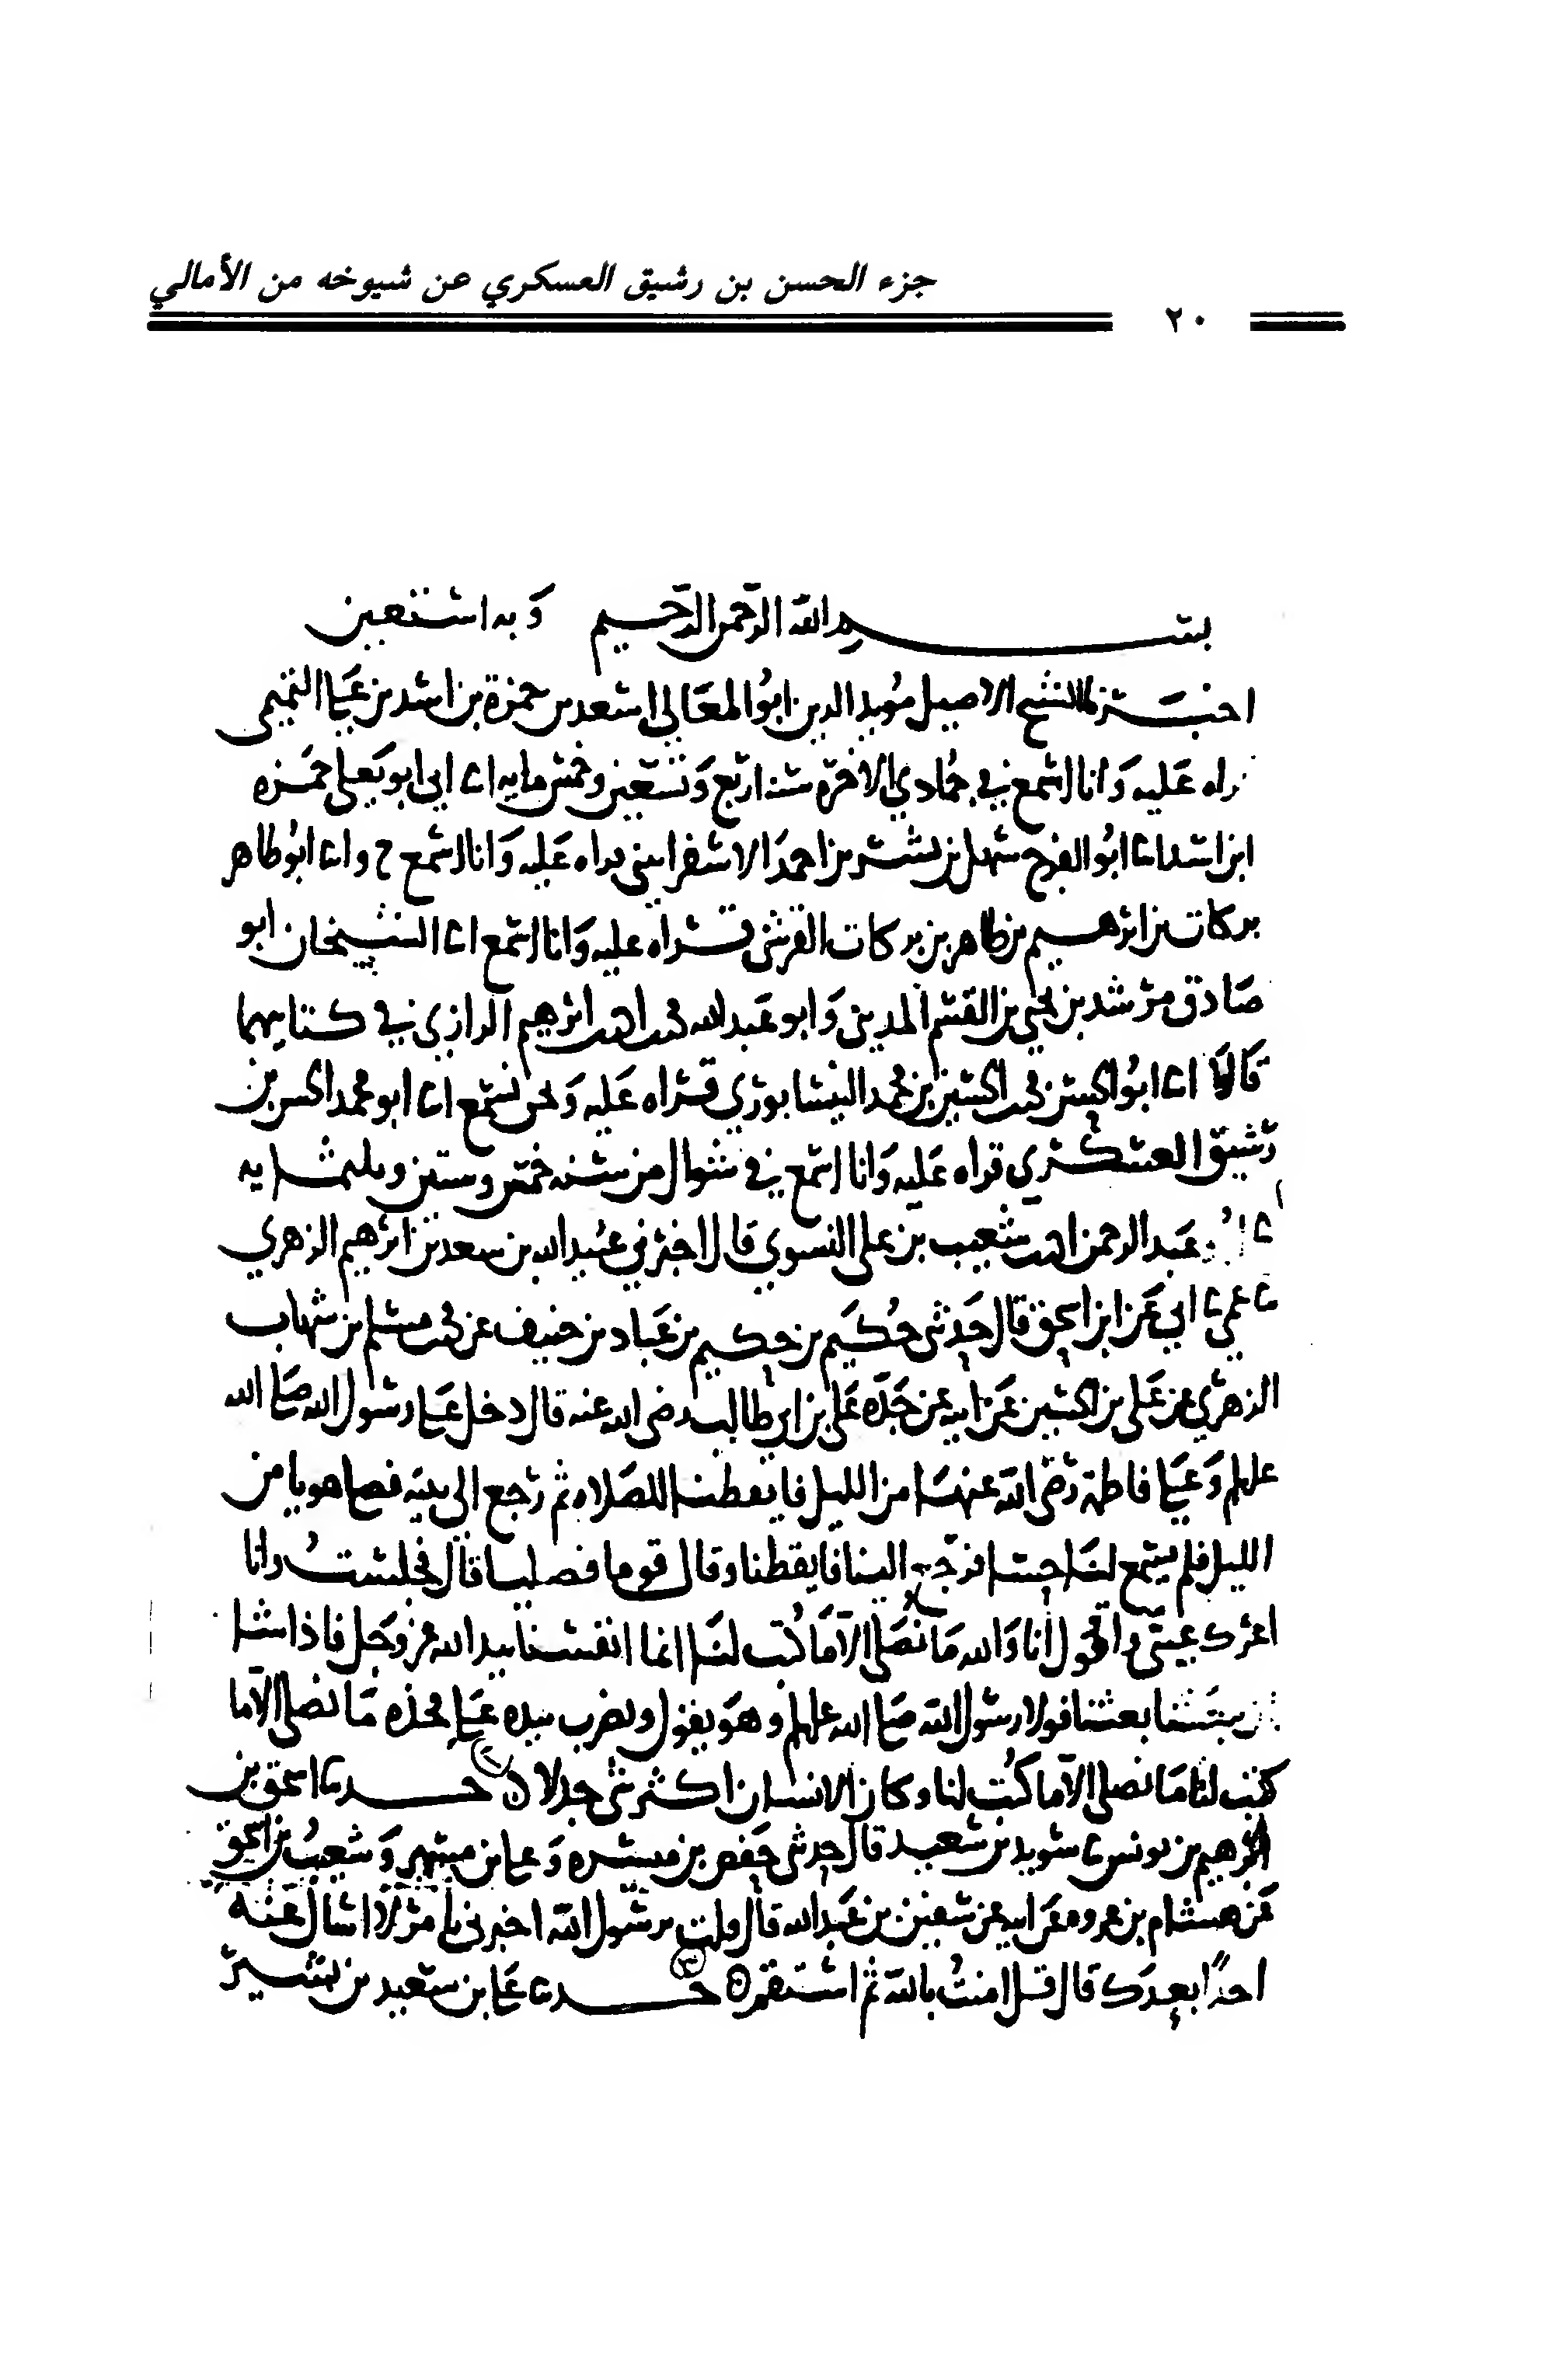 جزء الحسن بن رشيق العسكري عن شيوخه من الأمالي
٢٠
بسم الله الرحمن الرحيم وبه استعين
اخبرنا الشيخ الاصيل مويد الدين ابو المعالي اسعد بن حمزة بن اسد بن علي التميمي
قراه عليه وانا اسمع في جمادي الاخرة سنه اربع وتسعين وخمس مايه انا ابي ابو يعلى حمزه
ابن اسد انا ابو الفرج سهل بن بشر بن احمد الاسفرايني قراه عليه وانا اسمع ح وانا ابو طاهر
بركات بن ابرهيم بن طاهر بن بركات القرشي قراه عليه وانا اسمع انا الشيخان ابو
صادق مرشد بن يحيى بن القسم المديني وابو عبد الله محمد بن احمد بن ابرهيم الرازي في كتابيهما
قالا انا ابو الحسن محمد بن الحسين بن محمد النيسابوري قراه عليه ونحن نسمع انا ابو محمد الحسن بن
رشيق العسكري قراه عليه وانا اسمع في شوال من سنه خمس وستين وثلثمايه
عبد الرحمن احمد بن شعيب بن علي النسوي قال اخبرني عبيد الله بن سعد بن ابرهيم الزهري
ثنا عمي ثنا ابي عن ابن اسحق قال حدثني حكيم بن حكيم بن عباد بن حنيف عن محمد بن مسلم بن شهاب
الزهري عن علي بن الحسين عن ابيه عن جده علي بن ابي طالب رضي الله عنه قال دخل علي رسول الله صلى الله
عليه وسلم وعلى فاطمة رضي الله عنها من الليل فايقظنا للصلاه ثم رجع الى بيته فصلى هويا من
الليل فلم يسمع لنا حسا فرجع الينا فايقظنا وقال قوما فصليا قال فجلست وانا
اعرك عيني واقول انا والله ما نصلي الا ما كتب لنا انما انفسنا بيد الله عز وجل فاذا شا
ان يبعثنا بعثنا فولا رسول الله صلى الله عليه وسلم وهو يقول ويضرب بيده على فخذه ما نصلي الا ما
كتب لنا ما نصلي الا ما كتب لنا وكان الانسان اكثر شي جدلا ٥ (٢) حدثنا اسحق بن
ابرهيم بن يونس ثنا سويد بن سعيد قال حدثني حفص بن ميسره وعلي بن مسهر وشعيب بن اسحق
عن هشام بن عروه عن ابيه عن سفين بن عبد الله قال قلت يرسول الله اخبرني بامر لا اسال عنه
احدا بعدك قال قل امنت بالله ثم استقم ٥ (٣) حدثنا علي بن سعيد بن بشير